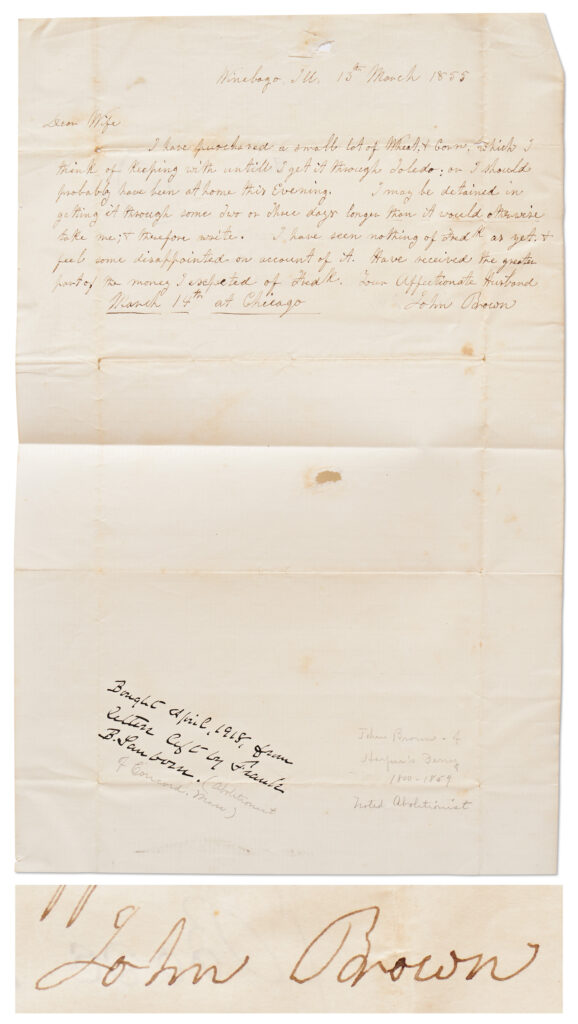 Winebago, Ill, 13th March 1855
Dear Wife
I have purchased a small lot of Wheat, & Corn, which I
think of keeping with untill I get it through Toledo; or I should
probably have been at home this Evening. I may be detained in
getting it through some Two or Three days longer than it would otherwise
take me; & therefore write. I have seen nothing of Fredk as yet. &
feel some disappointed on account of it. Have received the greater
part of the money I expected of Fredk. Your Affectionate Husband
March 14th at Chicago John Brown
Bought April, 1918, from
letters left by Frank
B. Sanborn. (Abolitionist
of Concord, Mass)
John Brown - of
Harper's Ferry
1800-1859
Noted Abolitionist
John Brown